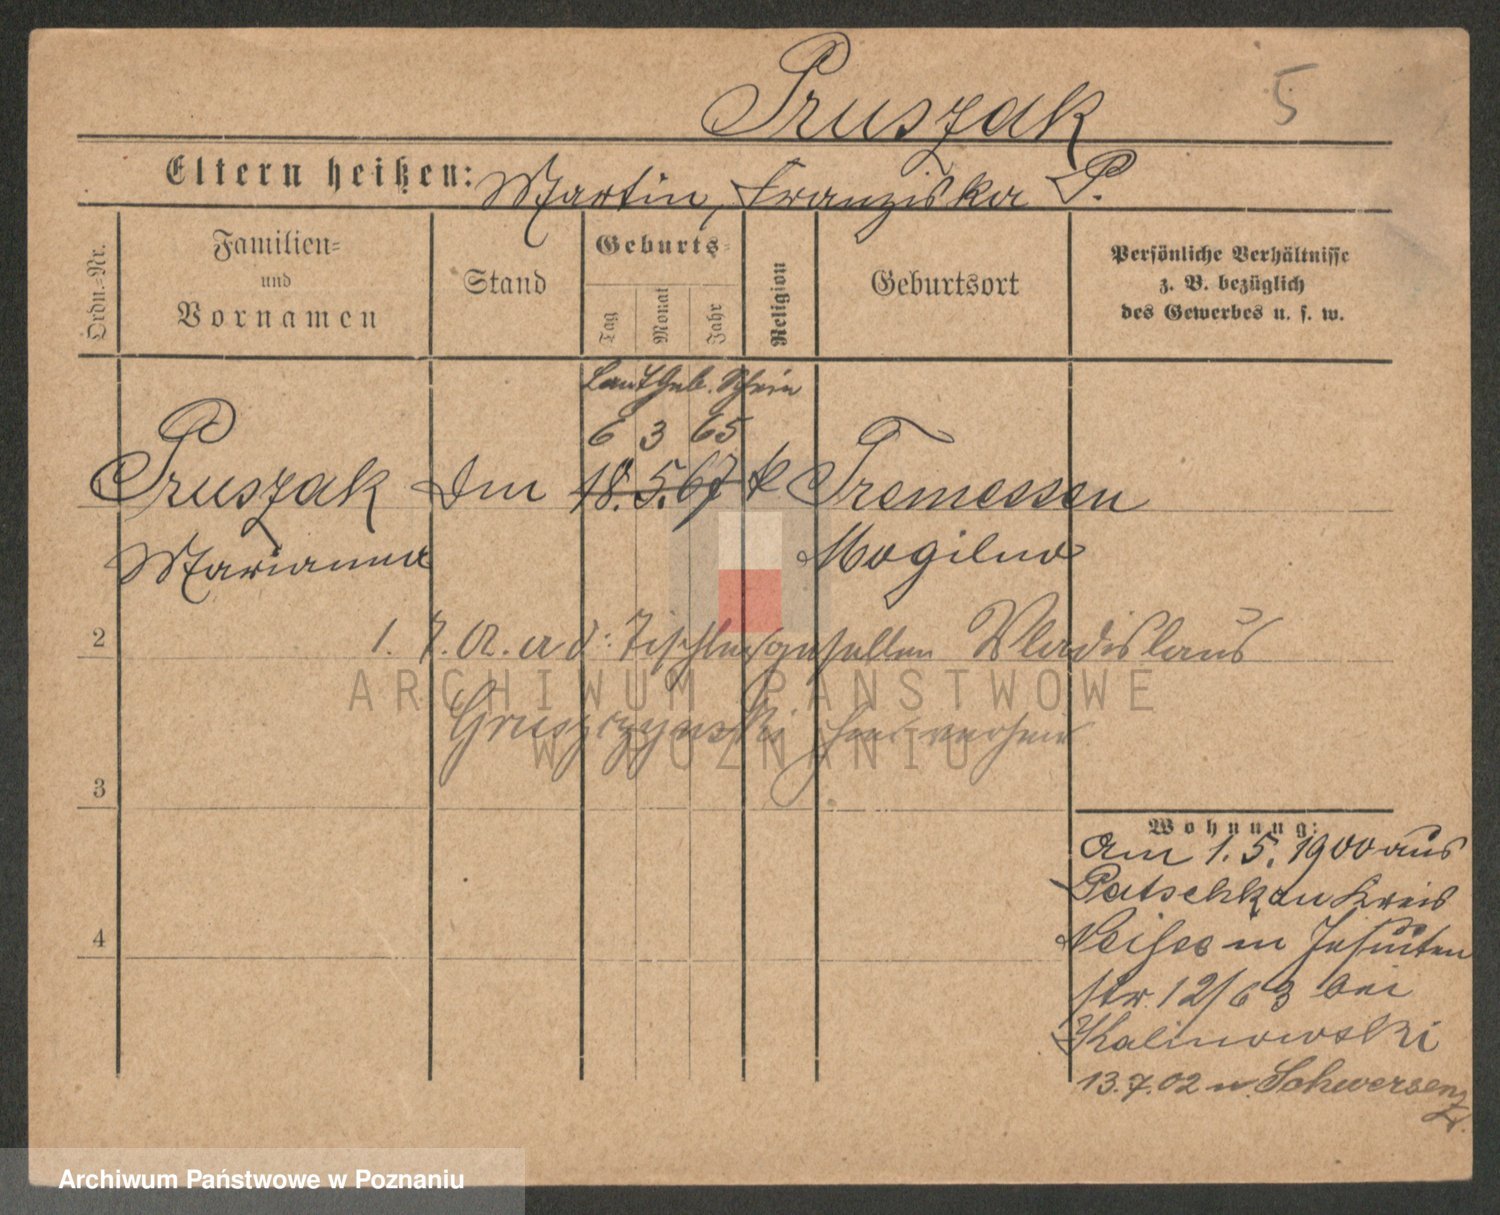 Pruszak
5
Eltern heißen: Martin, Franziska P.
Ordn.-Nr.
Familien-
und
Vornamen
Stand
Geburts-
Tag
Monat
Jahr
Religion
Geburtsort
Persönliche Verhältnisse
z. B. bezüglich
des Gewerbes u. s. w.
Laut Geb. Schein
6 3 65
Pruszak 18. 5. 67 k Tremessen
Marianna Mogilno
2
1. 7. a. d: Tischlergesellen Wladislaus
Gruszczynski hier verheir
3
4
Wohnung:
am 1. 5. 1900 aus
Patschkau Kreis
Neisse in Jesuiten
str. 12/63 bei
Kalinowski
13.7.02 n. Schwersenz
ARCHIWUM PAŃSTWOWE
W POZNANIU
Archiwum Państwowe w Poznaniu